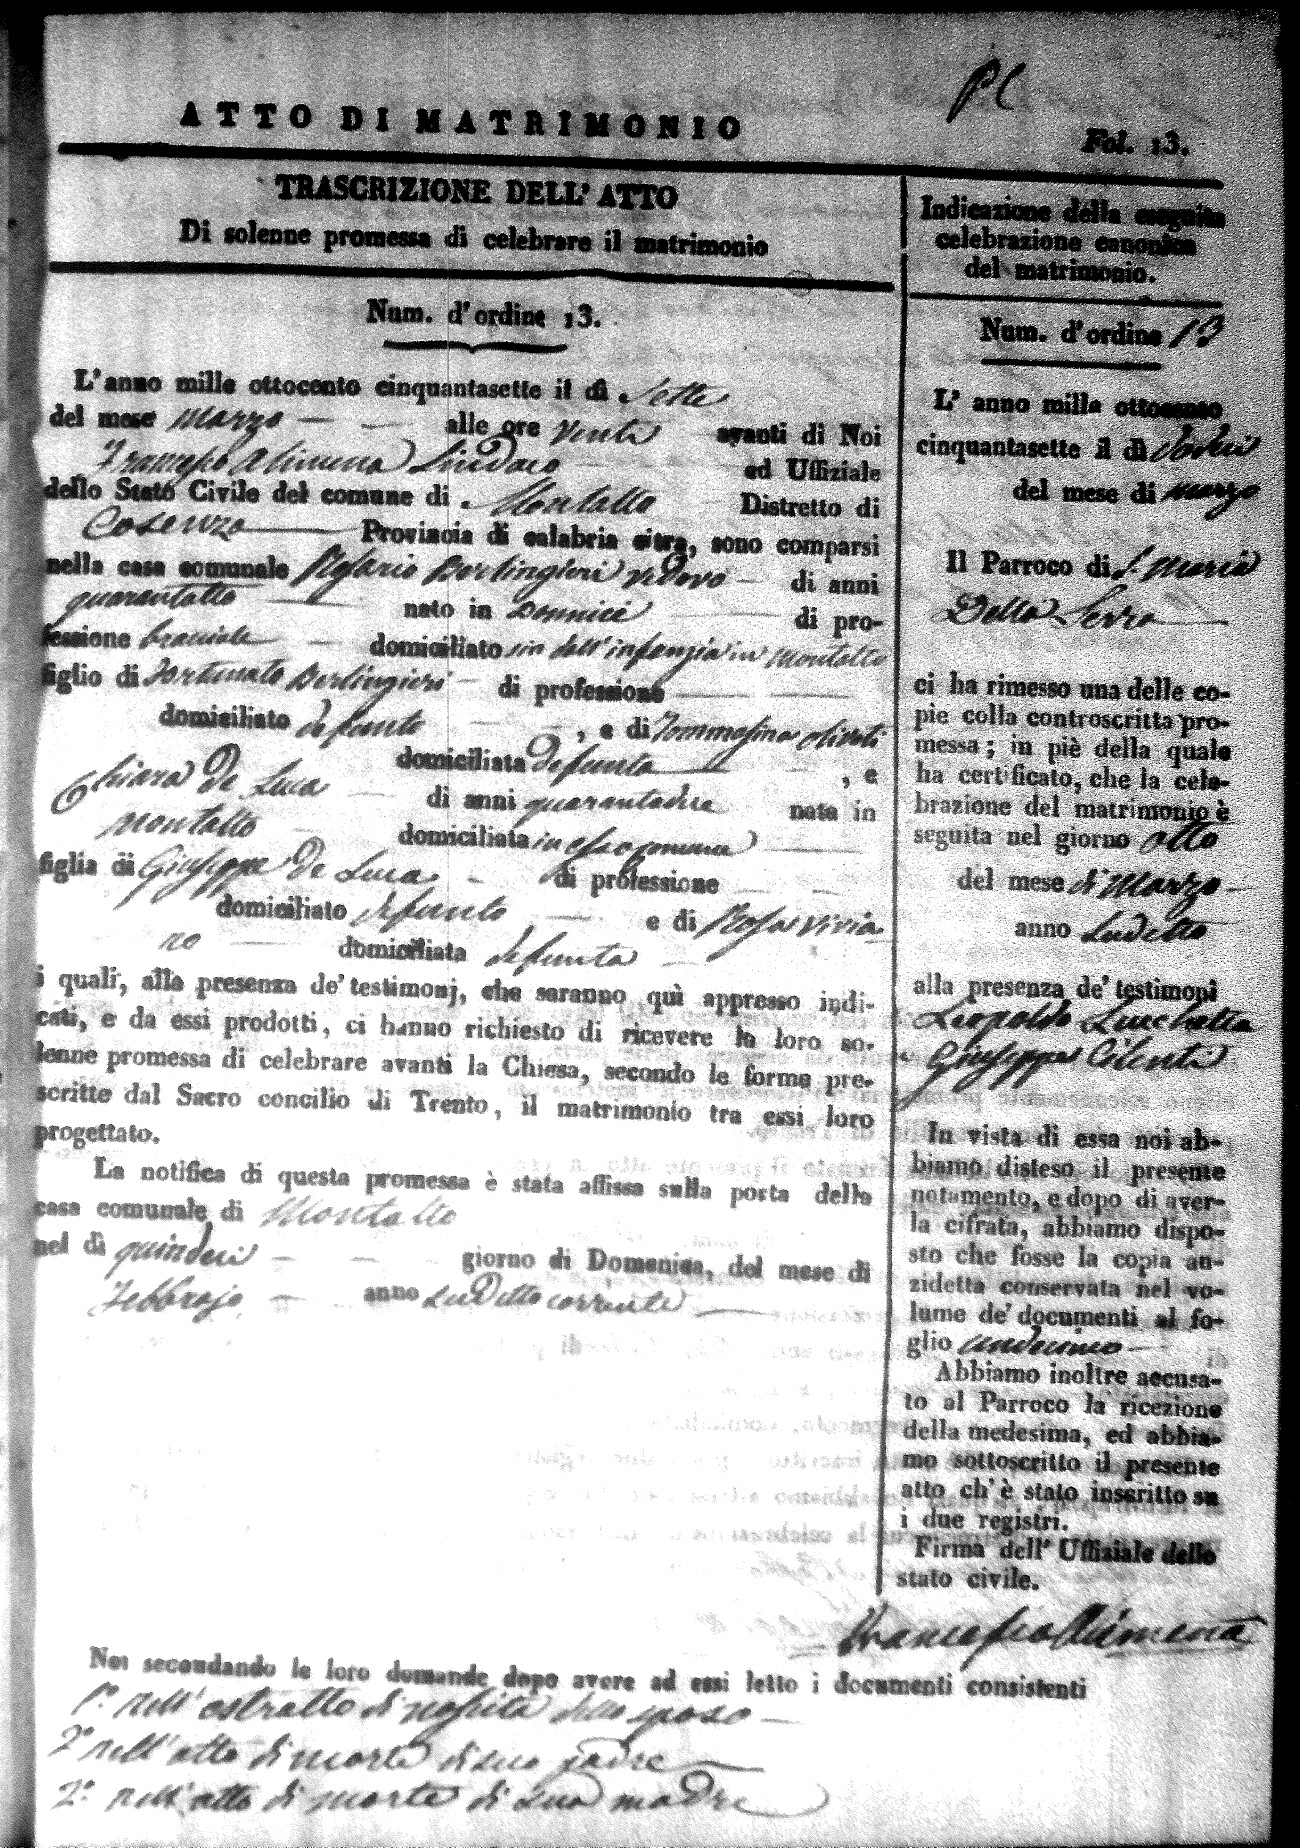 Pl
ATTO DI MATRIMONIO
Fol. 13.
TRASCRIZIONE DELL' ATTO
Di solenne promessa di celebrare il matrimonio
Num. d'ordine 13.
L'anno mille ottocento cinquantasette il dì Sette
del mese Marzo alle ore venti avanti di Noi
Francesco Alimena Sindaco ed Uffiziale
dello Stato Civile del comune di Montalto Distretto di
Cosenza Provincia di calabria citra, sono comparsi
nella casa comunale Rosario Berlingieri vedovo di anni
quarantotto nato in Donnici di pro-
fessione bracciale domiciliato sin dall'infanzia in Montalto
figlio di Fortunato Berlingieri di professione
domiciliato defunto , e di Tommasina
domiciliata defunta , e
Chiara De Luca di anni quarantadue nata in
Montalto domiciliata in esso comune
figlia di Giuseppe De Luca di professione
domiciliato defunto e di Rosa Vivia
no domiciliata defunta
i quali, alla presenza de' testimonj, che saranno quì appresso indi-
cati, e da essi prodotti, ci hanno richiesto di ricevere la loro so-
lenne promessa di celebrare avanti la Chiesa, secondo le forme pre-
scritte dal Sacro concilio di Trento, il matrimonio tra essi loro
progettato.
La notifica di questa promessa è stata affissa sulla porta della
casa comunale di Montalto
nel dì quindici giorno di Domenica, del mese di
Febbrajo anno suddetto corrente
Noi secondando le loro domande dopo avere ad essi letto i documenti consistenti
1.° nell'estratto di nascita dello sposo
2.° nell'atto di morte di suo padre
2.° nell'atto di morte di sua madre
Indicazione della eseguita
celebrazione canonica
del matrimonio.
Num. d'ordine 13
L' anno mille ottocento
cinquantasette il dì
del mese di marzo
Il Parroco di S. Maria
Della Serra
ci ha rimesso una delle co-
pie colla controscritta pro-
messa; in piè della quale
ha certificato, che la cele-
brazione del matrimonio è
seguita nel giorno otto
del mese di Marzo
anno suddetto
alla presenza de' testimoni
Leopoldo Lucchetta
Giuseppe Cilento
In vista di essa noi ab-
biamo disteso il presente
notamento, e dopo di aver-
la cifrata, abbiamo dispo-
sto che fosse la copia an-
zidetta conservata nel vo-
lume de' documenti al fo-
glio undecimo
Abbiamo inoltre accusa-
to al Parroco la ricezione
della medesima, ed abbia-
mo sottoscritto il presente
atto ch'è stato inscritto su
i due registri.
Firma dell' Uffiziale dello
stato civile.
Francesco Alimena